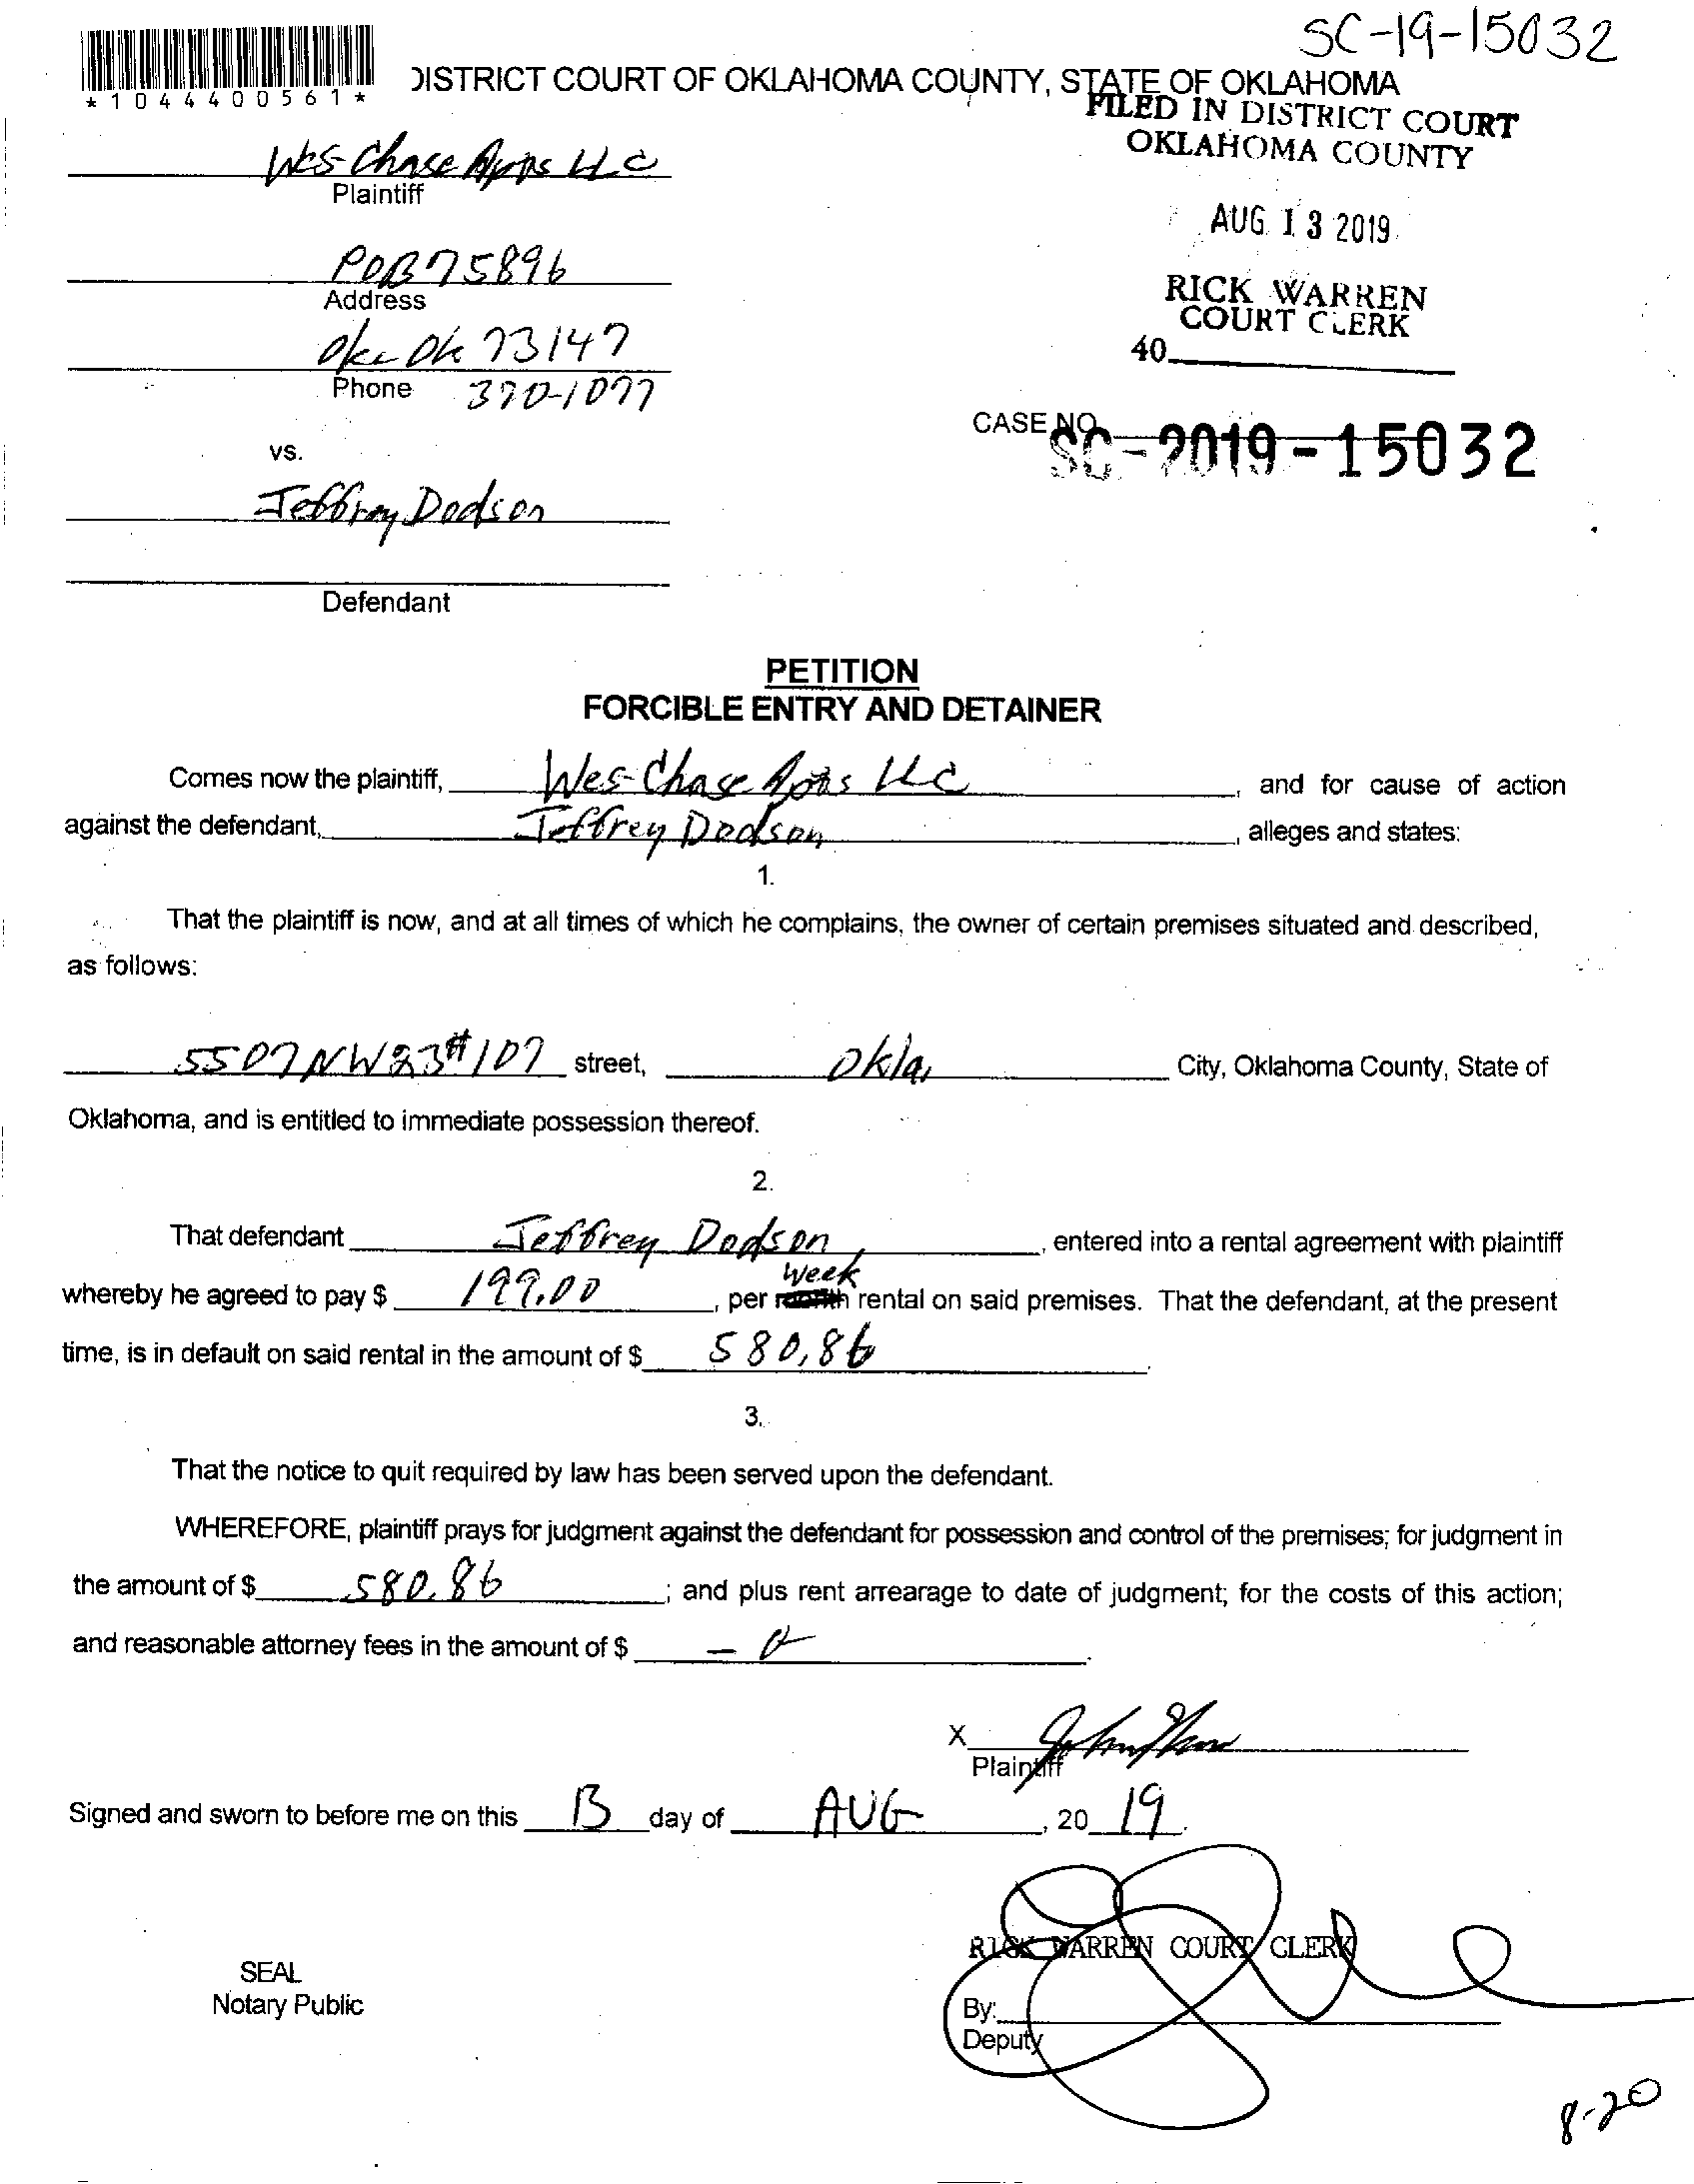 SC-19-15032
*1044400561*
DISTRICT COURT OF OKLAHOMA COUNTY, STATE OF OKLAHOMA
FILED IN DISTRICT COURT
OKLAHOMA COUNTY
Wes-Chase Apts LLC
Plaintiff
AUG 13 2019
POB 75896
Address
RICK WARREN
COURT CLERK
Okc Ok 73147
40
Phone 370-1077
CASE NO. SC-2019-15032
vs.
Jeffrey Dodson
Defendant
PETITION
FORCIBLE ENTRY AND DETAINER
Comes now the plaintiff, Wes-Chase Apts LLC, and for cause of action
against the defendant, Jeffrey Dodson, alleges and states:
1.
That the plaintiff is now, and at all times of which he complains, the owner of certain premises situated and described,
as follows:
5507 NW 23 #107 street, Okla, City, Oklahoma County, State of
Oklahoma, and is entitled to immediate possession thereof.
2.
That defendant Jeffrey Dodson, entered into a rental agreement with plaintiff
Week
whereby he agreed to pay $ 199.00, per month rental on said premises. That the defendant, at the present
time, is in default on said rental in the amount of $ 580,86.
3.
That the notice to quit required by law has been served upon the defendant.
WHEREFORE, plaintiff prays for judgment against the defendant for possession and control of the premises; for judgment in
the amount of $ 580.86; and plus rent arrearage to date of judgment; for the costs of this action;
and reasonable attorney fees in the amount of $ - 0.
X
Plaintiff
Signed and sworn to before me on this 13 day of AUG, 20 19.
RICK WARREN COURT CLERK
SEAL
Notary Public
By:
Deputy
8-20